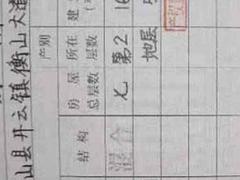 山县开云镇衡山大道
产别
结构 房屋 所在 建
总层数 层数
混合 七 第2
地层